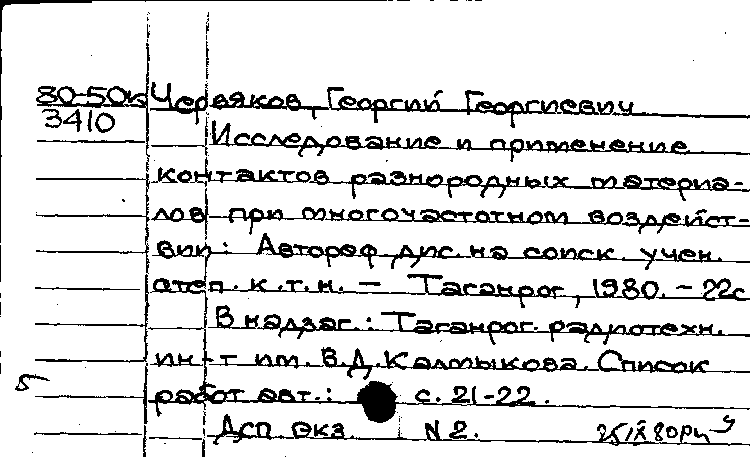 80-50к Червяков, Георгий Георгиевич
3410
Исследование и применение
контактов разнородных материа-
лов при многочастотном воздейст-
вии: Автореф. дис. на соиск. учен.
степ. к.т.н. - Таганрог, 1980. - 22с
В надзаг.: Таганрог. радиотехн.
ин-т им. В.Д. Калмыкова. Список
5 работ авт.: с. 21-22.
Дсп. экз. N 2.